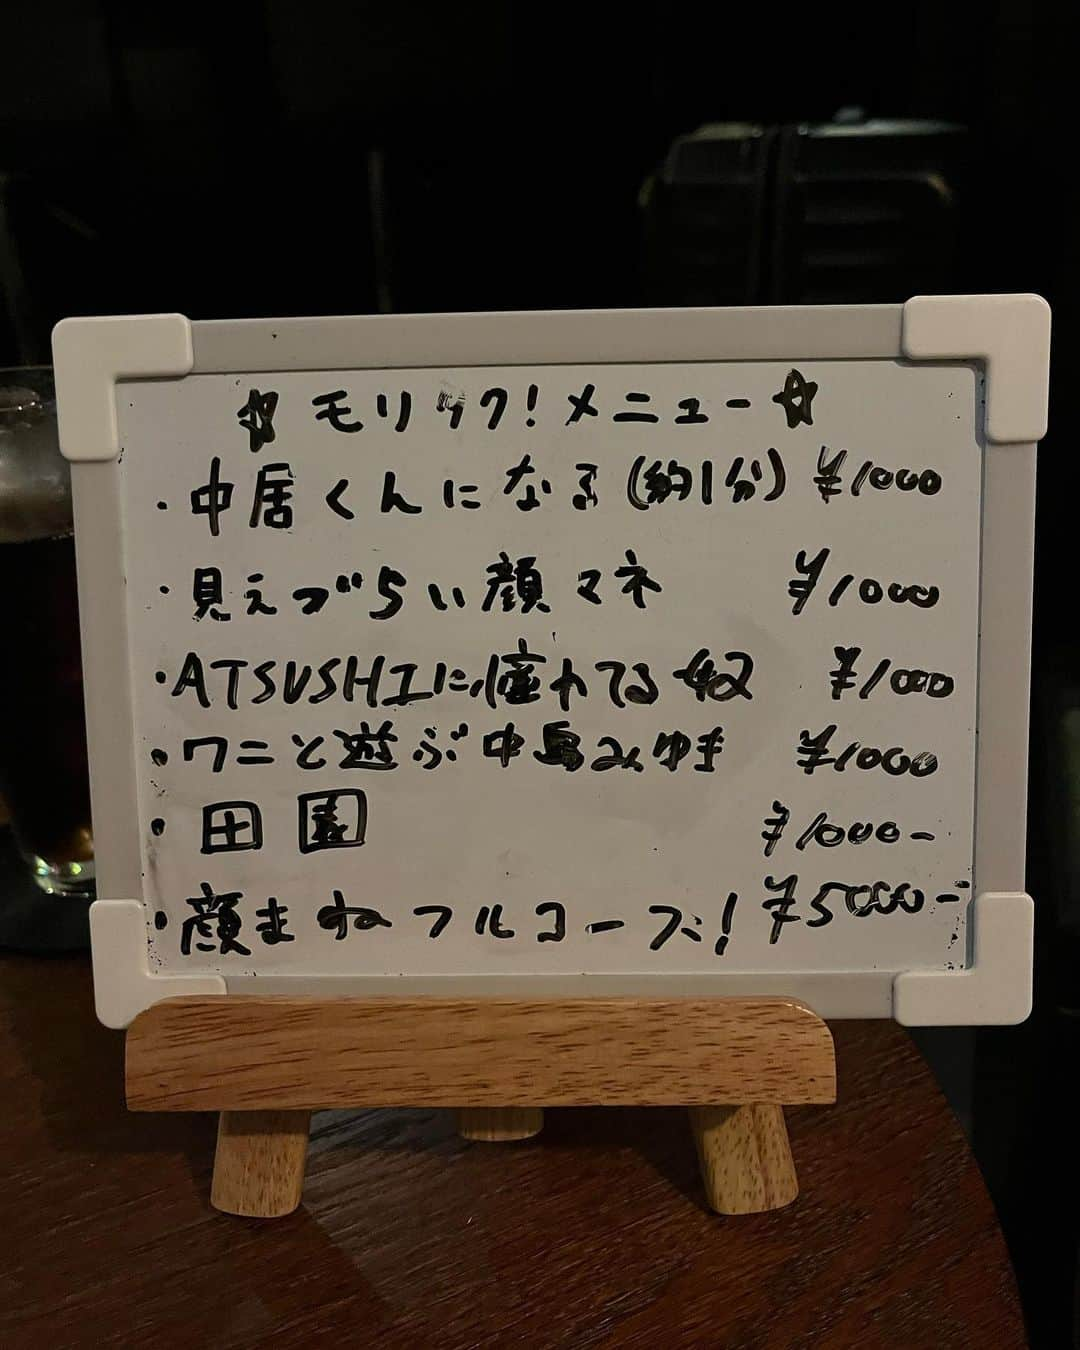 ☆モリック!メニュー☆
・中居くんになる(約1分) ¥1000
・見えづらい顔マネ ¥1000
・ATSUSHIに憧れてる奴 ¥1000
・ワニと遊ぶ中島みゆき ¥1000
・田園 ¥1000-
・顔まねフルコース! ¥5000-